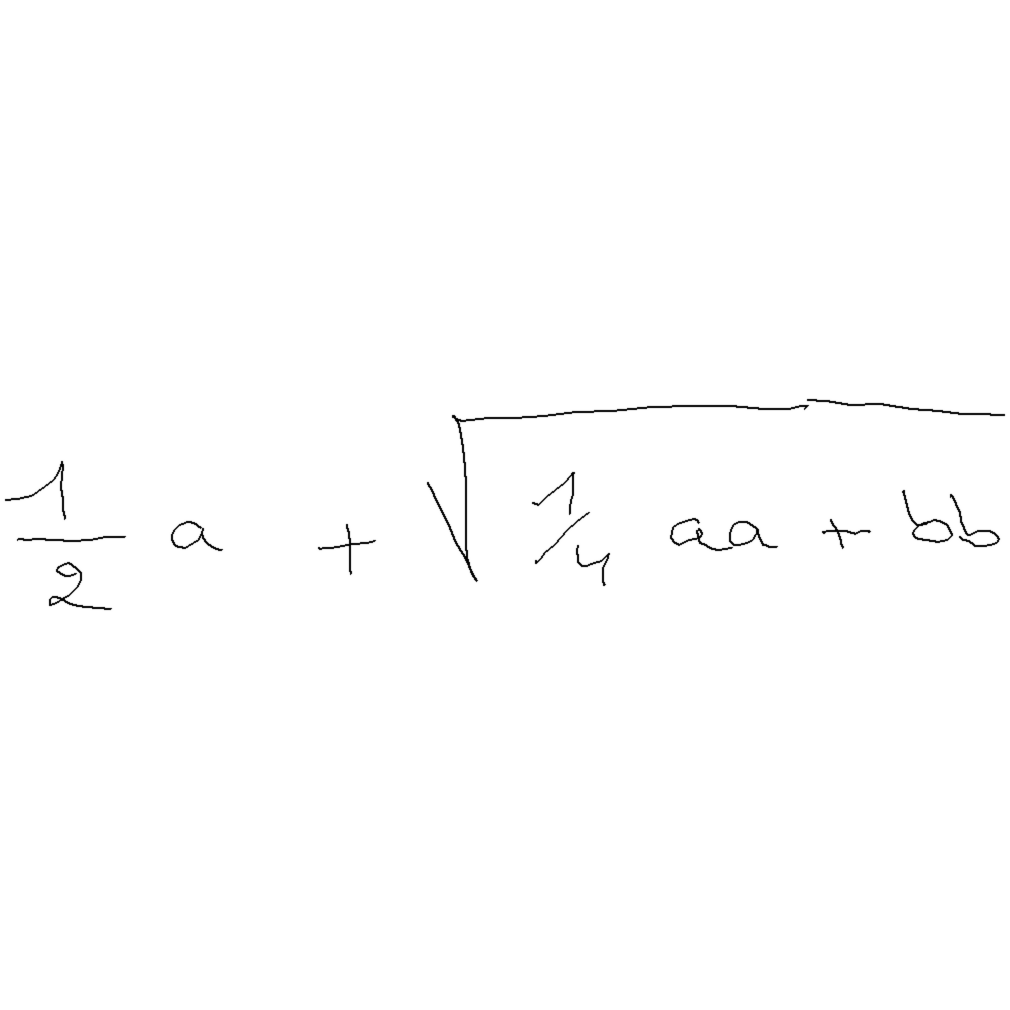 \frac{1}{2} a + \sqrt{1/4 aa + bb}